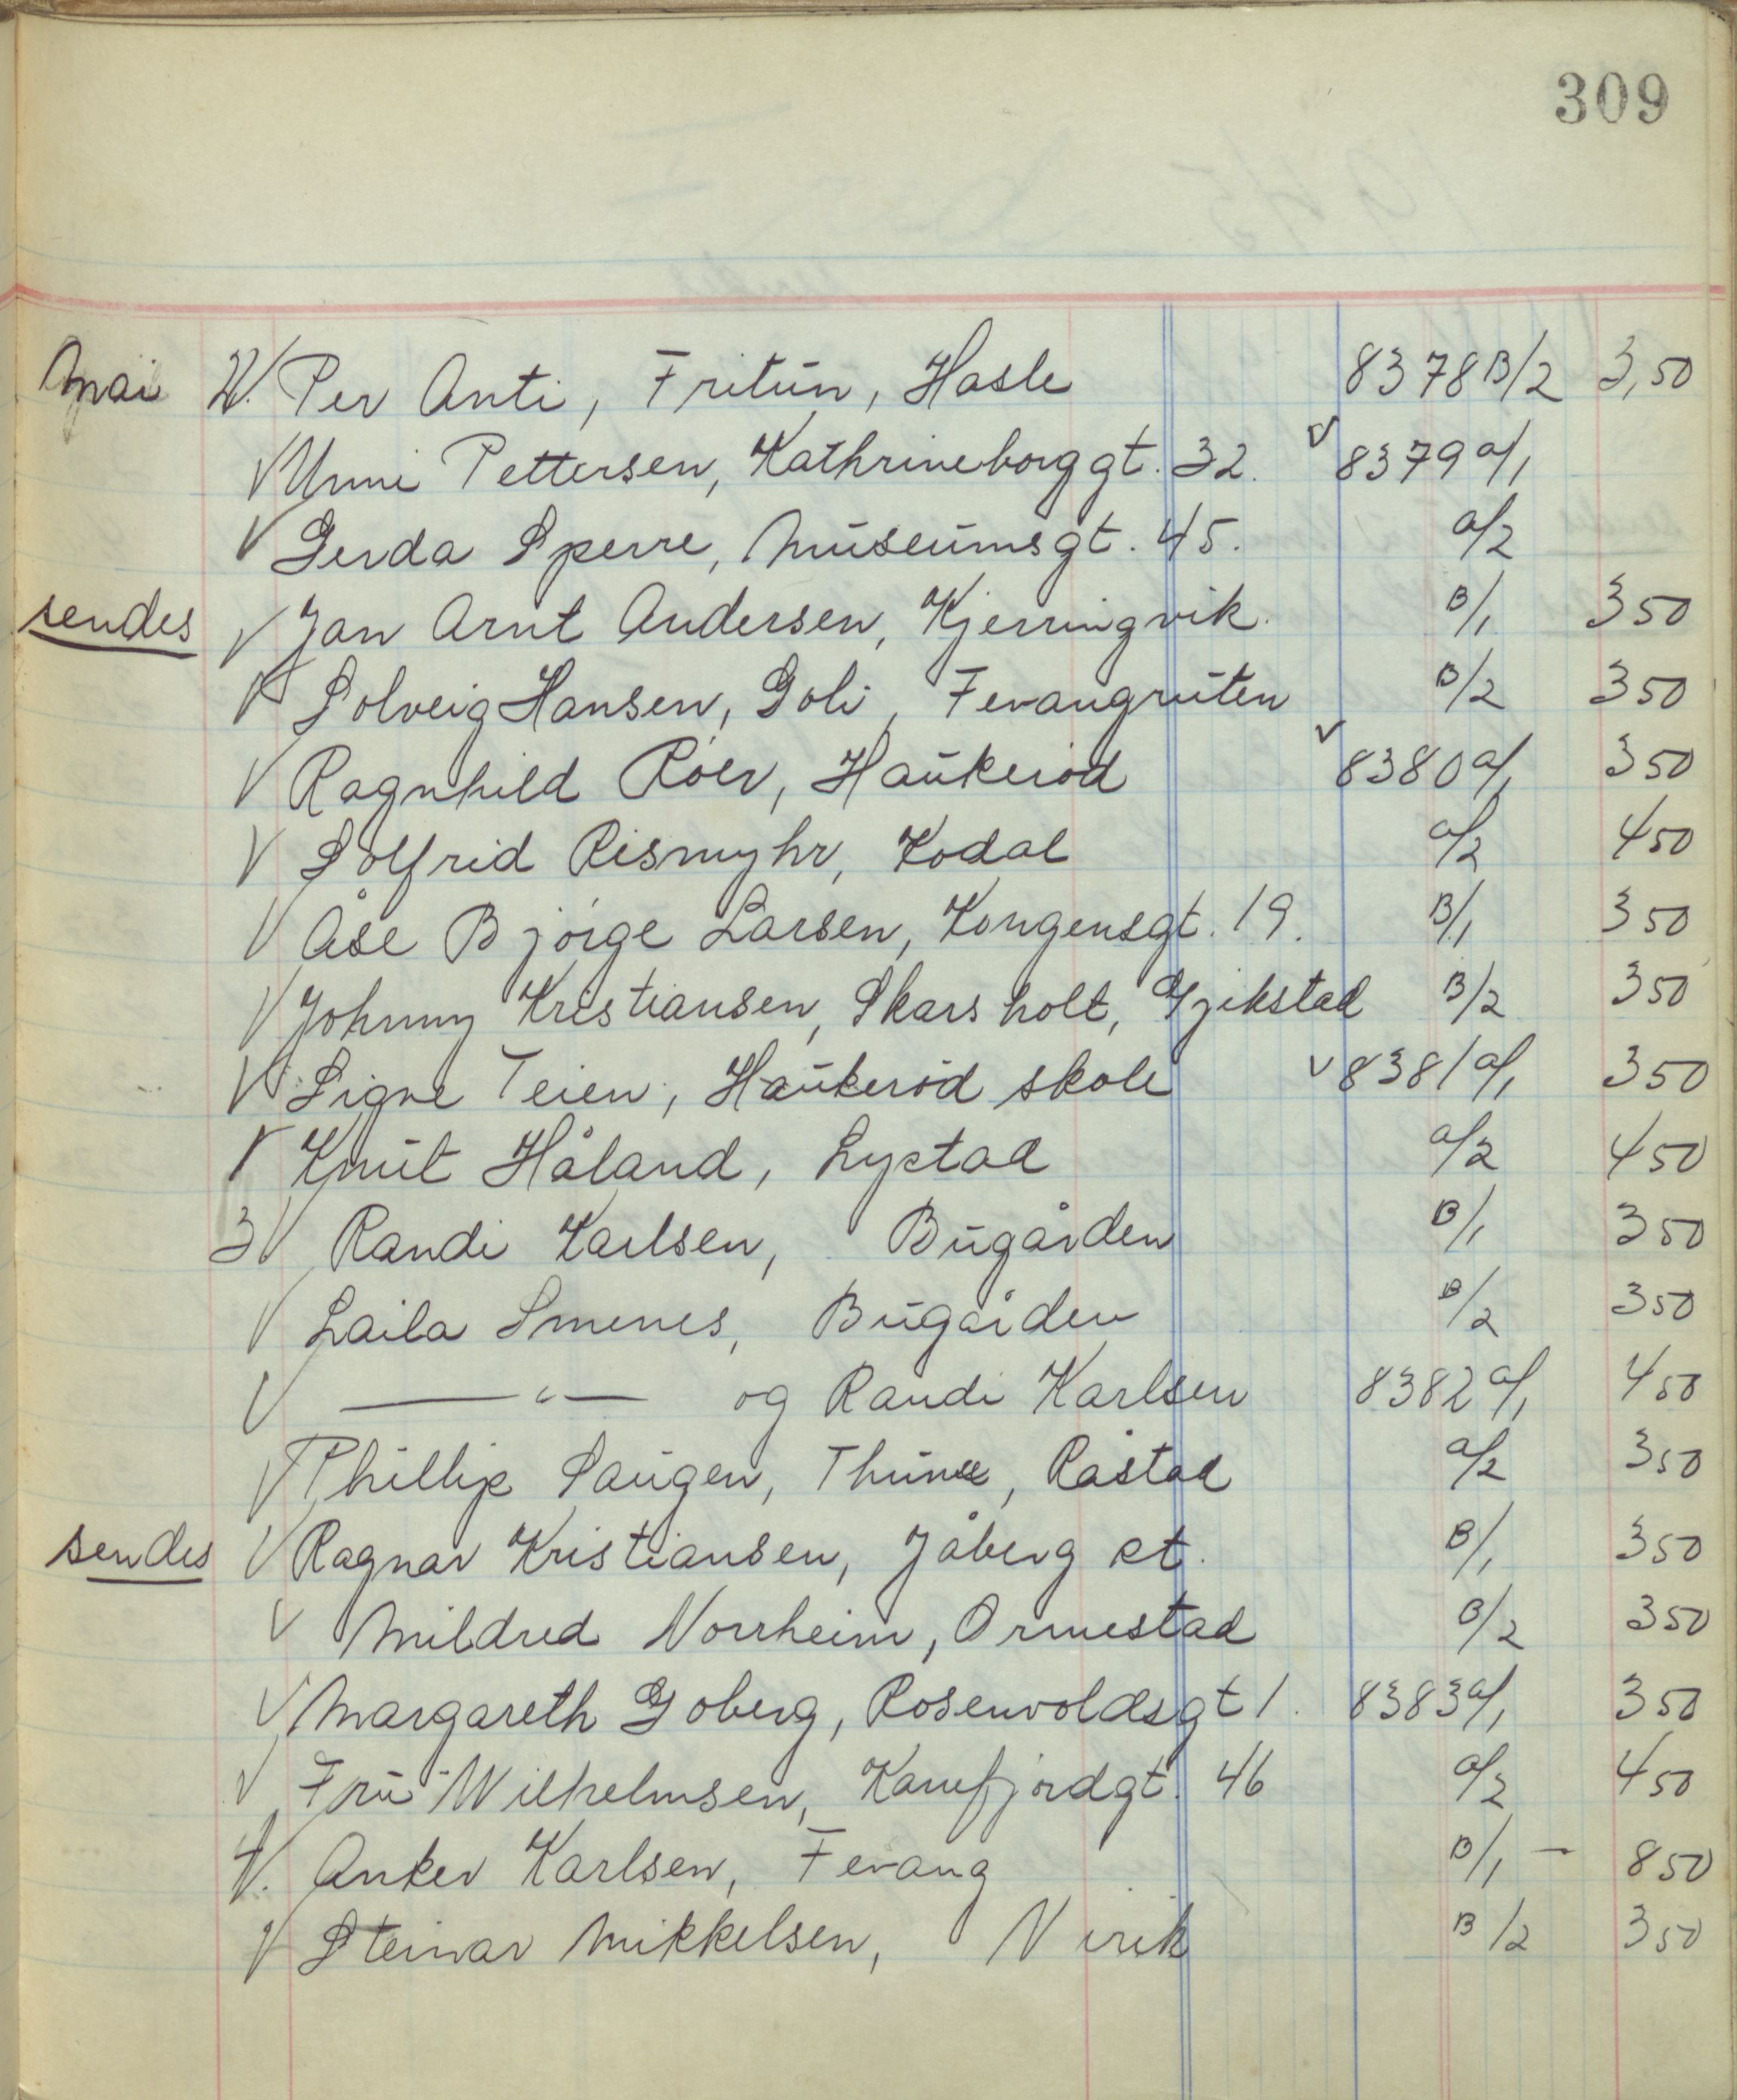 309
Mai 2. V Per Anti, Fritun, Hasle 8378 B/2 3,50
V Unni Pettersen, Kathrineborggt. 32. V 8379 a/1
V Gerda Sperre, Museumsgt. 45. a/2
sendes V Jan Arnt Andersen, Kjerringvik. B/1 350
V Solveig Hansen, Goli, Fevangruten B/2 350
V Ragnhild Röer, Haukeröd V 8380 a/1 350
V Solfrid Rismyhr, Kodal a/2 450
V Åse Björge Larsen, Kongensgt. 19. B/1 350
V Johnny Kristiansen, Skarsholt, Gjekstad B/2 350
V Signe Teien, Haukeröd skole V 8381 a/1 350
V Knut Håland, Lystad a/2 450
3 V Randi Karlsen, Bugården B/1 350
V Laila Smenes, Bugården B/2 350
V —"— og Randi Karlsen 8382 a/1 450
V Phillip Saugen, Råstad a/2 350
sendes V Ragnar Kristiansen, Jåberg st. B/1 350
V Mildred Norrheim, Ormestad B/2 350
V Margareth Goberg, Rosenvoldsgt 1. 8383 a/1 350
V Fru Wilhelmsen, Kamfjordgt. 46 a/2 450
4. V Anker Karlsen, Fevang B/1 — 850
V Steinar Mikkelsen, Virik B/2 350